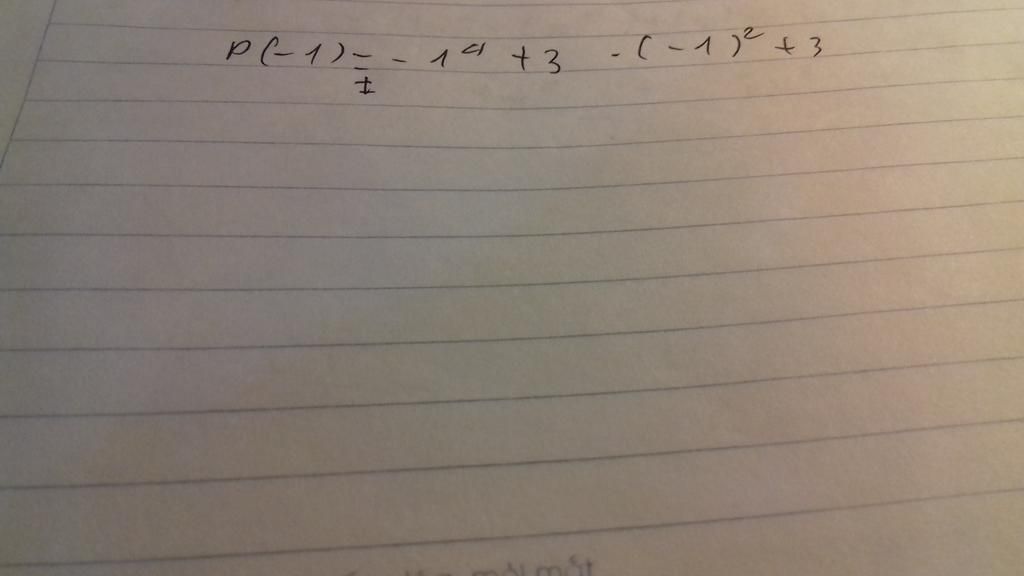 P(-1) = -1⁴ + 3 - (-1)² + 3